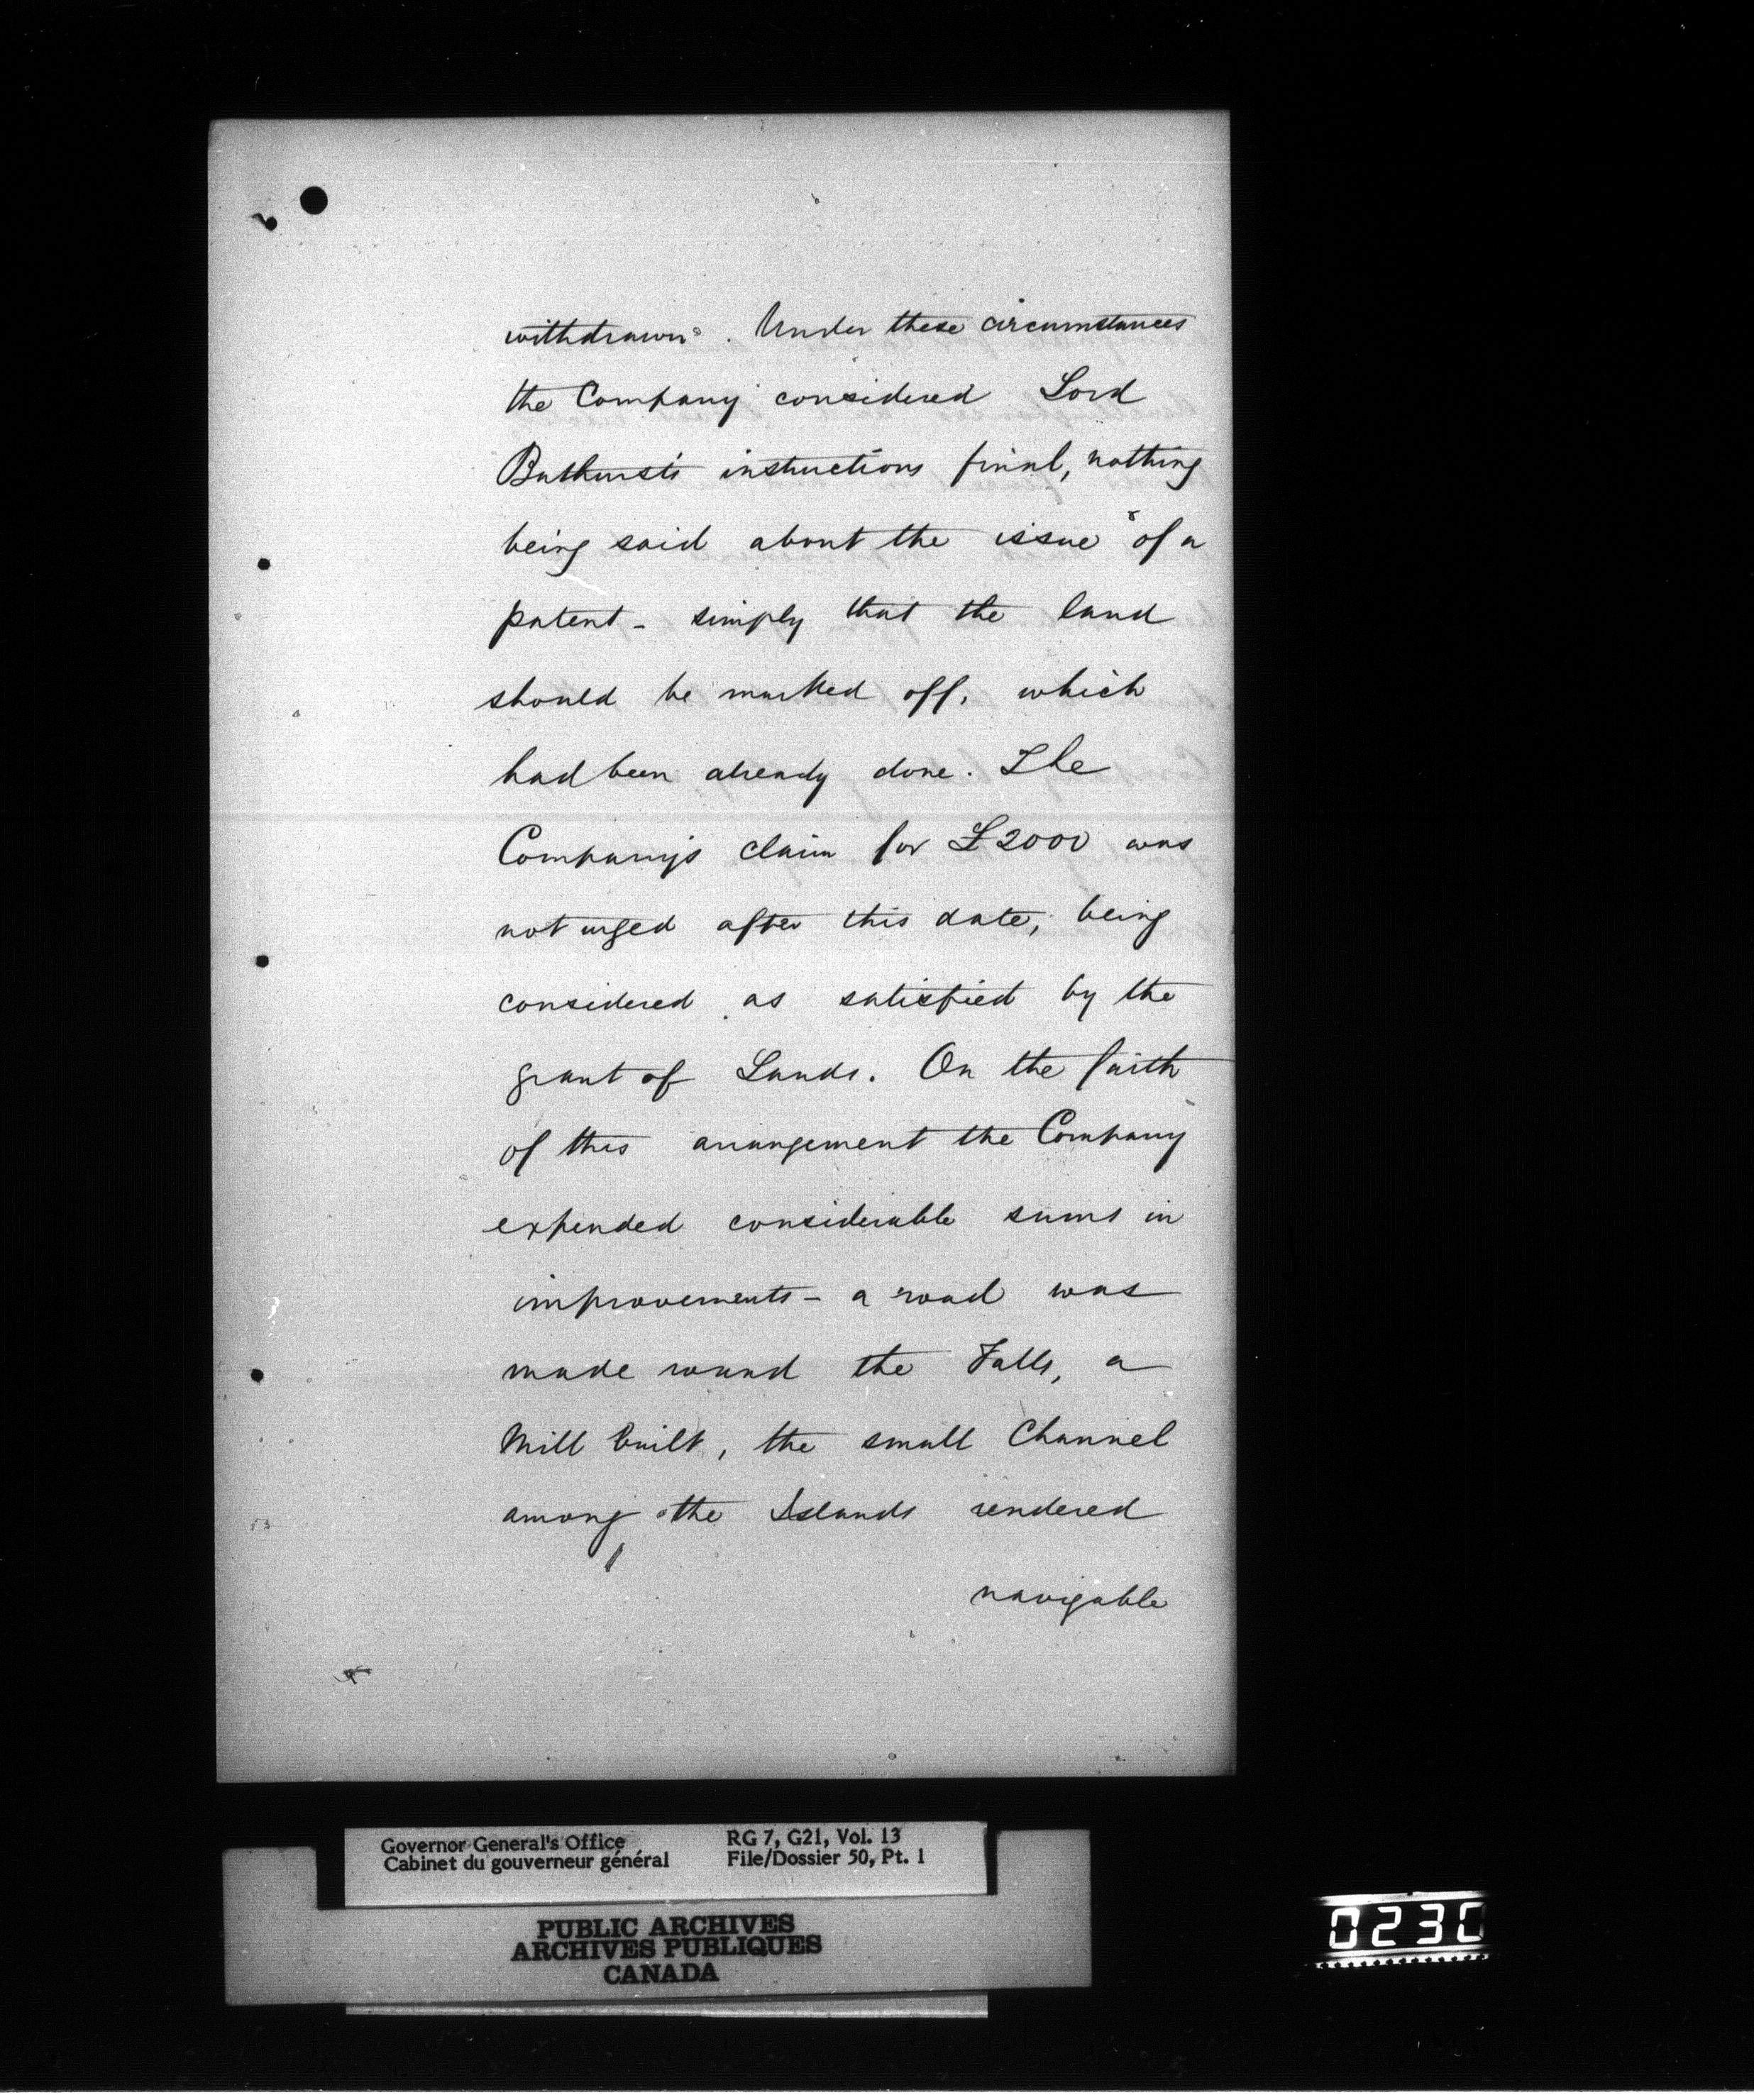 withdrawn. Under these circumstances
the Company considered Lord
Bathurst's instructions final, nothing
being said about the issue of a
patent - simply that the land
should be marked off, which
had been already done. The
Company's claim for £2000 was
not urged after this date, being
considered as satisfied by the
grant of Lands. On the faith
of this arrangement the Company
expended considerable sums in
improvements - a road was
made round the Falls, a
Mill built, the small Channel
among the Islands rendered
navigable
Governor General's Office
Cabinet du gouverneur général
RG 7, G21, Vol. 13
File/Dossier 50, Pt. 1
PUBLIC ARCHIVES
ARCHIVES PUBLIQUES
CANADA
0230